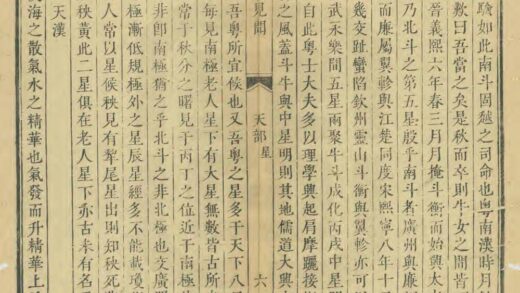 驗如此南斗固越之司命也粵南漢時月
歎曰吾當之矣是秋而卒則牛女之間皆
晉義熙六年春三月月掩斗衡而始興太
乃北斗之第五星殷乎南斗者廣州與廉
而廉屬翼軫與江楚同度宋熙寧八年十
幾交趾蠻陷欽州靈山斗衡與翼軫亦可
武永樂間五星兩聚牛斗成化丙戌中星明
自此粵士大夫多以理學興起肩摩躡接
之風蓋斗牛與中星明則其地儒道大興
見聞 天部 星 六
吾粵所宜候也又吾粵之星多于天下八
每見南極老人星下有大星無數皆古所
常于秋分之曙見于丙丁之位近于南極
非卽南極猶之乎北斗之非北極也交廣間
極漸低規極外之星辰星經多不能載瓊
人常以星候秧見有犂尾星出則知秧死
秧黃此二星俱在老人星下亦古未有名
天漢
海之散氣水之精華也氣發而升精華上